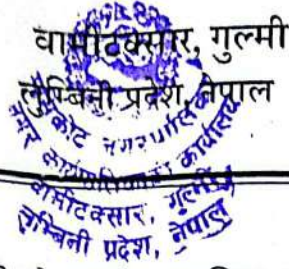 वामीटक्सार, गुल्मी
लुम्बिनी प्रदेश, नेपाल
नगरपालिका
नगर कार्यपालिकाको कार्यालय
वामीटक्सार, गुल्मी
लुम्बिनी प्रदेश, नेपाल